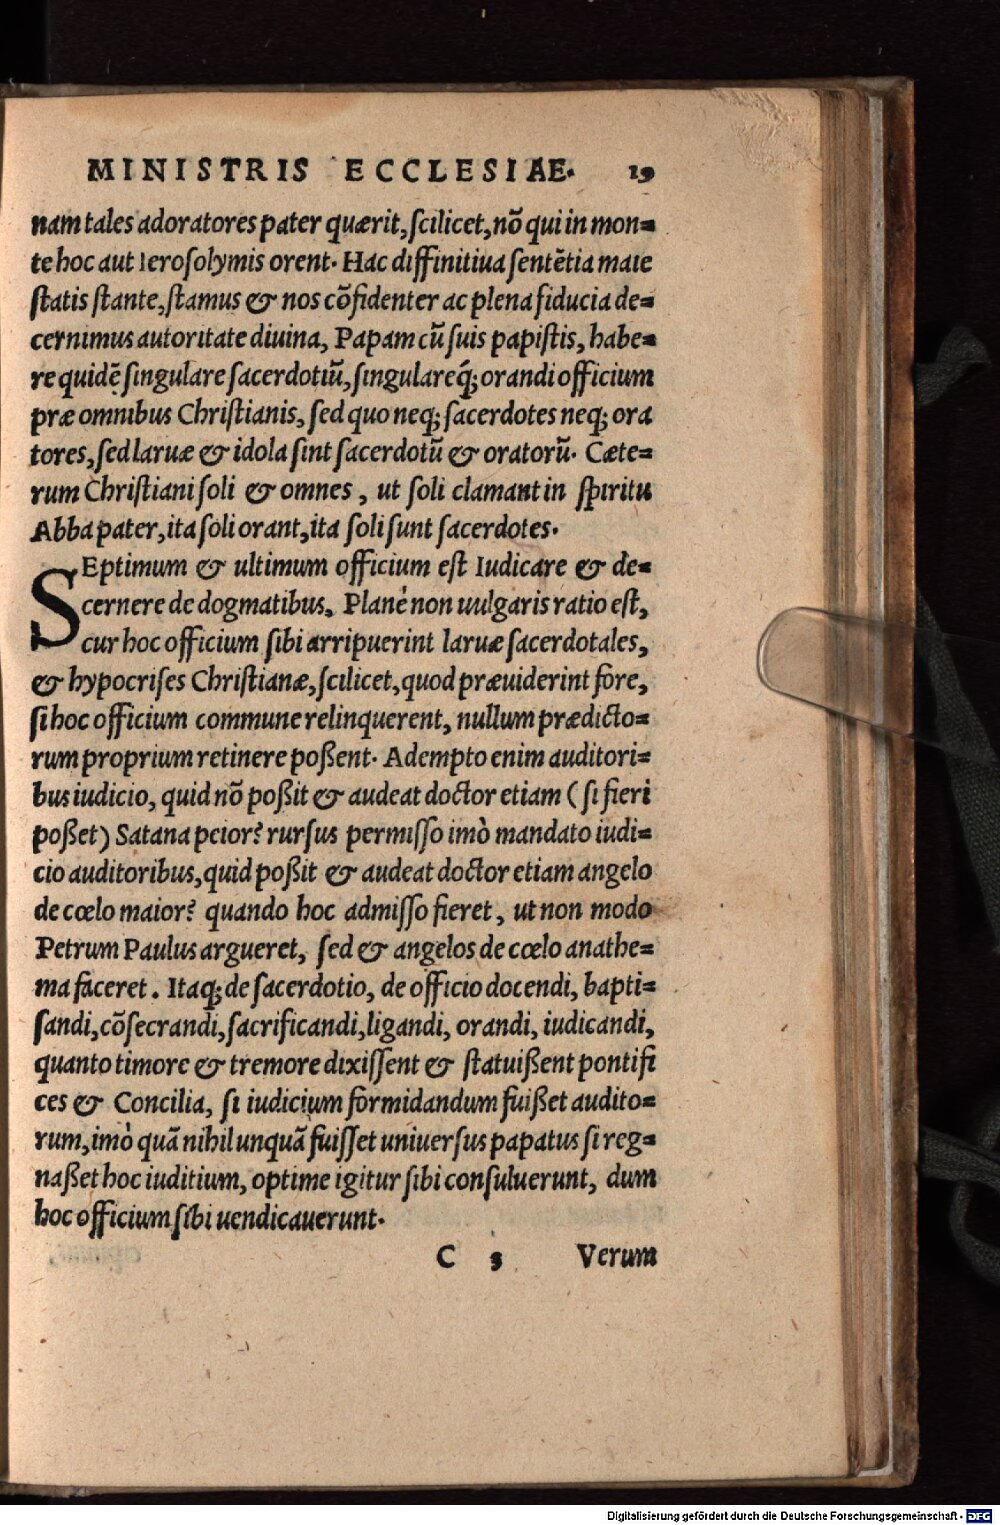 MINISTRIS ECCLESIAE. 19
nam tales adoratores pater quærit, ſcilicet, nõ qui in mon=
te hoc aut Ieroſolymis orent. Hac diffinitiua ſentẽtia maie
ſtatis ſtante, ſtamus & nos cõfidenter ac plena fiducia de=
cernimus autoritate diuina, Papam cũ ſuis papiſtis, habe=
re quidẽ ſingulare ſacerdotiũ, ſingulareq́; orandi officium
præ omnibus Chriſtianis, ſed quo neq; ſacerdotes neq; ora
tores, ſed laruæ & idola ſint ſacerdotũ & oratorũ. Cæte=
rum Chriſtiani ſoli & omnes, ut ſoli clamant in ſpiritu
Abba pater, ita ſoli orant, ita ſoli ſunt ſacerdotes.
SEptimum & ultimum officium eſt Iudicare & de=
cernere de dogmatibus. Planè non uulgaris ratio eſt,
cur hoc officium ſibi arripuerint laruæ ſacerdotales,
& hypocriſes Chriſtianæ, ſcilicet, quod præuiderint fore,
ſi hoc officium commune relinquerent, nullum prædicto=
rum proprium retinere poßent. Adempto enim auditori=
bus iudicio, quid nõ poßit & audeat doctor etiam (ſi fieri
poßet) Satana peior? rurſus permiſſo imò mandato iudi=
cio auditoribus, quid poßit & audeat doctor etiam angelo
de cœlo maior? quando hoc admiſſo fieret, ut non modo
Petrum Paulus argueret, ſed & angelos de cœlo anathe=
ma faceret. Itaq; de ſacerdotio, de officio docendi, bapti=
ſandi, cõſecrandi, ſacrificandi, ligandi, orandi, iudicandi,
quanto timore & tremore dixiſſent & ſtatuißent pontifi
ces & Concilia, ſi iudicium formidandum fuißet audito=
rum, imò quã nihil unquã fuiſſet uniuerſus papatus ſi reg=
naßet hoc iuditium, optime igitur ſibi conſuluerunt, dum
hoc officium ſibi uendicauerunt.
C 3 Verum
Digitalisierung gefördert durch die Deutsche Forschungsgemeinschaft - DFG